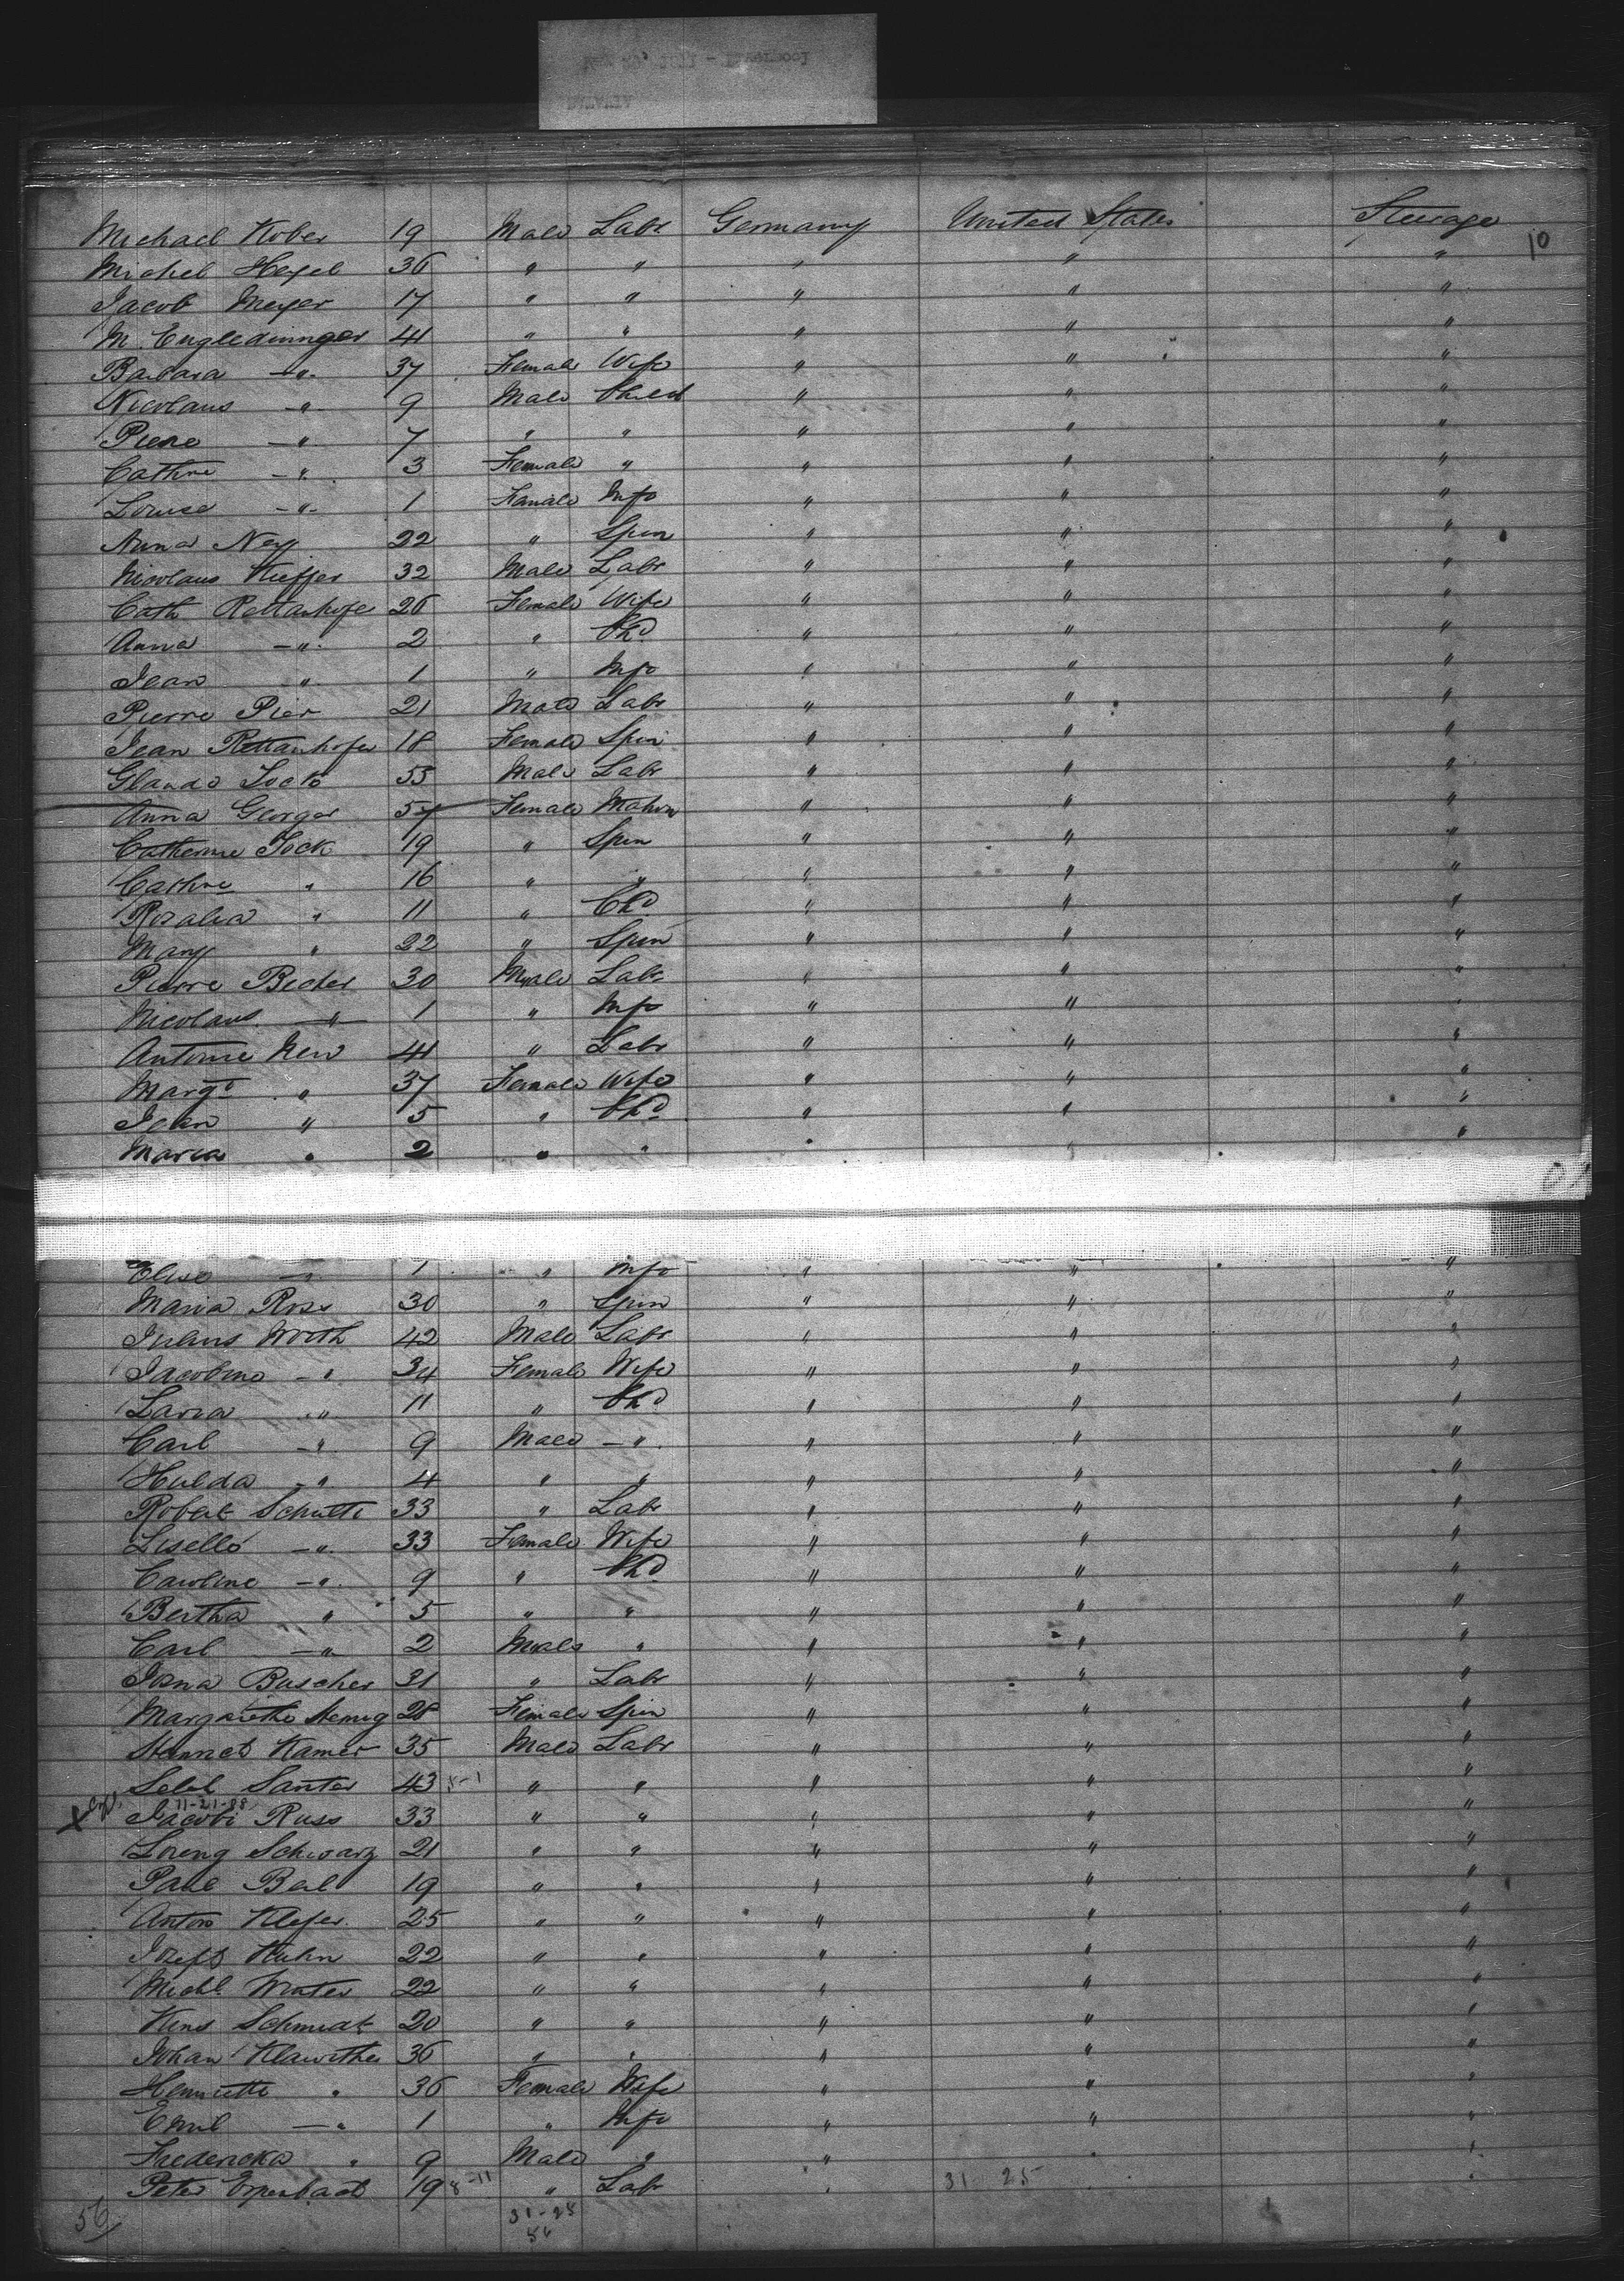 Michael Kober 19 Male Labr Germany United States Steerage
10
Michel Hegel 36 " " " " "
Jacob Meyer 17 " " " " "
M. Engledinnger 41 " " " " "
Barbara -"- 37 Female Wife " " "
Nicolaus -"- 9 Male Child " " "
Piere -"- 7 " " " " "
Cathne -"- 3 Female " " " "
Louise -"- 1 Female Inft " " "
Anna Ney 22 " Spin " " "
Nicolaus Kieffer 32 Male Labr " " "
Cath Rettanhofe 26 Female Wife " " "
Anna -"- 2 " Chd " " "
Jean " 1 " Inft " " "
Pierre Pier 21 Male Labr " " "
Jean Rettanhofer 18 Female Spin " " "
Glaude Jock 55 Male Labr " " "
Anna Gerges 57 Female Matron " " "
Catherine Jock 19 " Spin " " "
Cathne " 16 " " " " "
Rosalia " 11 " Chd " " "
Mary " 22 " Spin " " "
Pierre Becker 30 Male Labr " " "
Nicolaus -"- 1 " Inft " " "
Antoine New 41 " Labr " " "
Margt " 37 Female Wife " " "
Jean " 5 " Chd " " "
Maria " 2 " " " " "
Elise -"- 1 " Inft " " "
Maria Ross 30 " Spin " " "
Julius Worth 42 Male Labr " " "
Jacobine -" 34 Female Wife " " "
Laria " 11 " Chd " " "
Carl -" 9 Male -"- " " "
Hulda -" 4 " " " " "
Robert Schutte 33 " Labr " " "
Liselle -"- 33 Female Wife " " "
Caroline -"- 9 " Chd " " "
Bertha " 5 " " " " "
Carl -"- 2 Male " " " "
Buscher 31 " Labr " " "
Margarethe 28 Female Spin " " "
Kamer 35 Male Labr " " "
Santer 43 " " " " "
X 11-21-88
Jacobi Russ 33 " " " " "
Loreng Schwarz 21 " " " " "
Paul Beal 19 " " " " "
Anton Klefer 25 " " " " "
Josefs Hahn 22 " " " " "
Michl. Winter 22 " " " " "
Schmidt 20 " " " " "
Johan Klawitter 36 " " " " "
Henriette " 36 Female Wife " " "
Emil -"- 1 " Inft " " "
Fredericka " 9 Male " " " "
Peter 19 8-11 " Labr " 31 25 "
56
31-25
56